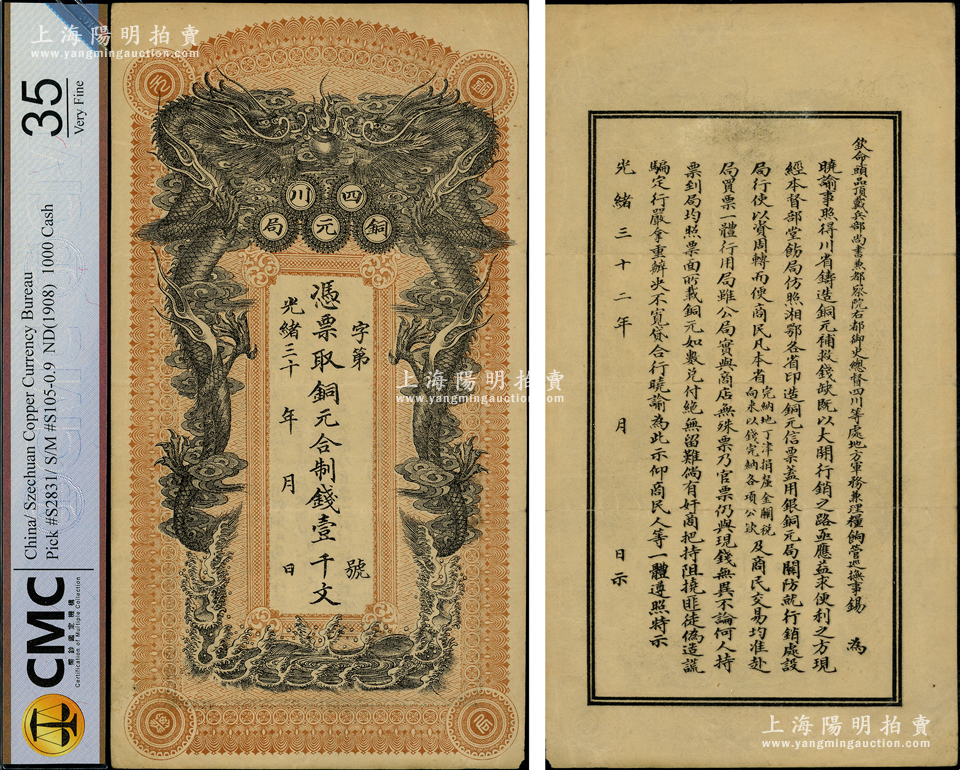 上海陽明拍賣
www.yangmingauction.com
35
Very Fine
China/ Szechuan Copper Currency Bureau
Pick #S2831/ S/M #S105-0.9 ND(1908) 1000 Cash
CMC
幣鈔鑑定機構
Certification of Multiple Collection
四川
銅元局
字第 號
憑票取銅元合制錢壹千文
光緒三十 年 月 日
上海陽明拍賣
www.yangmingauction.com
上海陽明拍賣
www.yangmingauction.com
欽命頭品頂戴兵部尚書兼都察院右都御史總督四川等處地方軍務兼理糧餉管巡撫事錫 為
曉諭事照得川省鑄造銅元補救錢缺既以大開行銷之路亟應益求便利之方現
經本督部堂飭局仿照湘鄂各省印造銅元信票蓋用銀銅元局關防就行銷處設
局行使以資周轉而便商民凡本省完納地丁津捐厘金關稅向來以錢完納各項公款及商民交易均准赴
局買票一體行用局雖公局實與商店無殊票乃官票仍與現錢無異不論何人持
票到局均照票面所載銅元如數兌付絕無留難倘有奸商把持阻撓匪徒偽造謊
騙定行嚴拿重辦決不寬貸合行曉諭為此示仰商民人等一體遵照特示
光緒三十二年 月 日示
上海陽明拍賣
www.yangmingauction.com